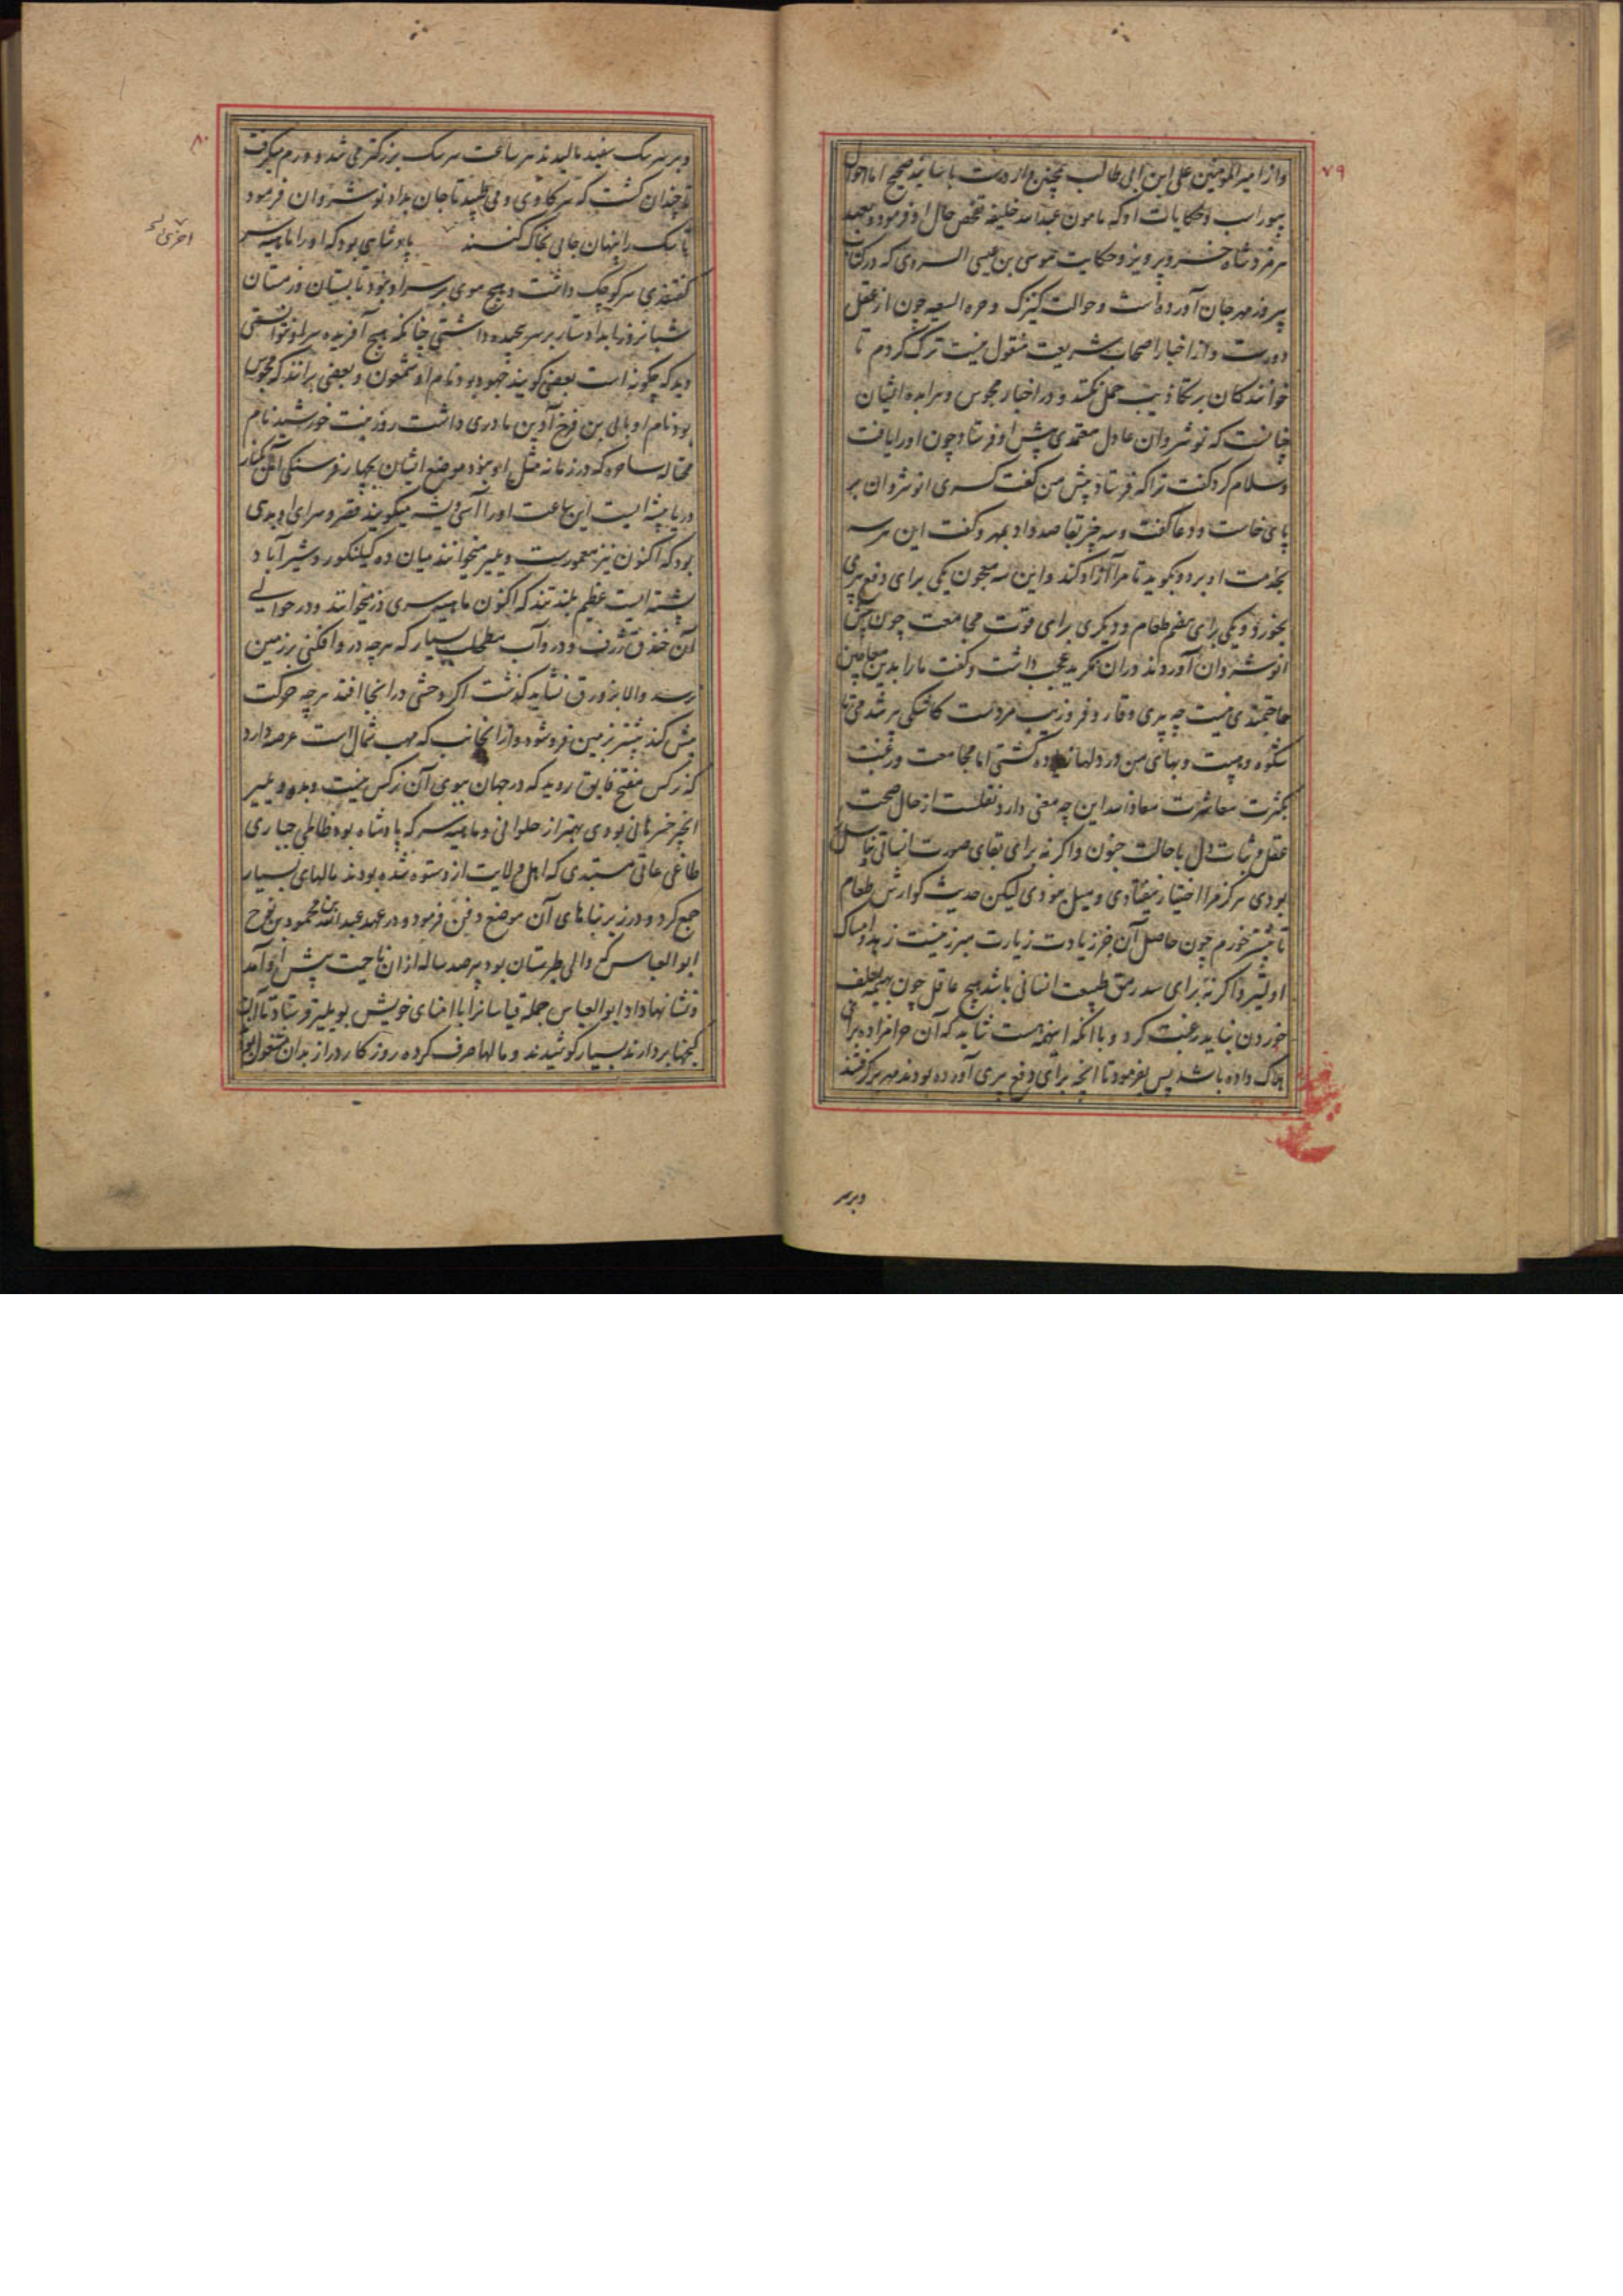 ۷۹
و از امیر المومنین علی ابن ابی طالب همچنین واردست باسانید صحیح اما احوال
بیوراسب و حکایات او که مامون عبدالله خلیفه تفحص حال او فرمود و بعهد
هرمزد شاه خسرو پرویز و حکایت موسی بن عیسی السروی که در کتاب
پیروز مهرجان آورده است و حوالت کیزک و حره الیسعیه چون از عقل
دورست و از اخبار اصحاب شریعت منقول نیست ترک کردم تا
خوانندکان بر تکاذیب حمل نکنند و در اخبار مجوس و هرابده ایشان
چنانست که نوشروان عادل معتمدی پیش او فرستاد چون او را یافت
و سلام کرد کفت ترا که فرستاد پیش من کفت کسری انوشروان بر
پای خاست و دعا کفت و سه چیز بقاصد داد بمهر و کفت این هر سه
بخدمت او برد و بکوید تا مرا آزاد کند و این سه معجون یکی برای دفع پیری
بخورد و یکی برای هضم طعام و دیکری برای قوت مجامعت چون پیش
انوشروان آوردند در ان نکرید عجب داشت و کفت ما را بدین معاجین
حاجتمندی نیست چه پیری وقار و فر و زیب مردست کاشکی پیر شدمی تا
شکوه و هیبت و بهای من در دلها زیاده کشتی اما مجامعت و رغبت
بکثرت معاشرت معاذ الله این چه معنی دارد نقلست از حال صحت
عقل و ثبات دل با حالت جنون و اکر نه برای بقای صورت انسانی و تناسل
بودی هرکز مرا اختیار نیفتادی و میل نبودی لیکن حدیث کوارش طعام
تا بیشتر خورم چون حاصل آن جز زیادت زیارت مبرز نیست زهد و امساک
اولیتر و اکر نه برای سد رمق طبیعت انسانی باشد هیچ عاقل چون بهیمه بعلف
خوردن نباید رغبت کرد و با انکه اینهمه هست شاید که آن حرامزاده برای
هلاک داده باشد پس بفرمود تا انچه برای دفع پیری آورده بودند مهر برکرفتند
و بر سر
۸۰
و بر سر سک سفید مالیدند هر ساعت سر سک بزرکتر می شد و ورم میکرفت
تا چندان کشت که سر کاوی و می طپید تا جان بداد نوشروان فرمود
تا سک را پنهان جایی بخاک کنند پادشاهی بود که او را ماهیه سر
اخری
کفتندی سر کوچک داشت و هیچ موی بر سر او نبود تابستان و زمستان
شبانروز باید دستار بر سر پیچیده داشتی چنانکه هیچ آفریده سر او نتوانستی
دید که چکونه است بعضی کویند جهود بود نام او شمعون و بعضی برانند که مجوس
بود نام او بابی بن فرخ آذین مادری داشت روز بنت خورشید نام
محتاله ساحره که در زمانه مثل او نبود موضع ایشان بچهار فرسنکی آمل بکنار
دریا بیشه ایست این ساعت او را آسی ویشه میکویند قصر و سرای او بدی
بود که اکنون نیز معمورست و یلیر میخوانند میان ده کیلنکور و شیر آباد
پشته ایست عظیم بلند تند که اکنون ماهیه سری دز میخوانند و در حوالی
آن خندق ژرف و در و آب مطحلب بسیار که هر چه در و افکنی بر زمین
رسد والا بزورق نشاید کذشت اکر وحشی در انجا افتد هر چه حرکت
بیش کند بیشتر بزمین فرو شود و از انجانب که مهب شمال است عرصه دارد
که نرکس مفتح فایق روید که در جهان ببوی آن نرکس نیست و بده و یلیر
انجیر خسرمانی بودی بهتر از حلوانی و ماهیه سر که پادشاه بود ظالمی جباری
طاغی عاتی مستبدی که اهل ولایت از و ستوه شده بودند مالهای بسیار
جمع کرد و در زیر بناهای آن موضع دفن فرمود و در عهد عبدالله بن محمود بن نوح
ابو العباس که والی طبرستان بود پیر صد ساله از ان ناحیت پیش او آمد
و نشانها داد ابو العباس جمله قیاسانرا با امنای خویش بو یلیر فرستاد تا آن
کنجها بردارند بسیار کوشیدند و مالها صرف کرده روزکار دراز بدان مشغول بود